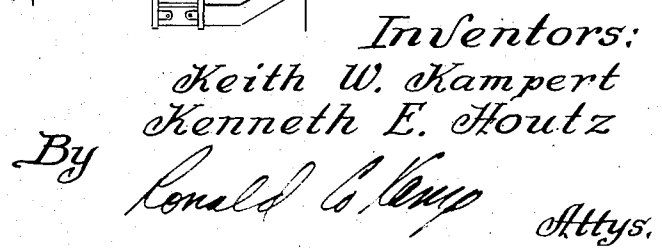 Inventors:
Keith W. Kampert
Kenneth E. Houtz
By Ronald C. Kamp
Attys.